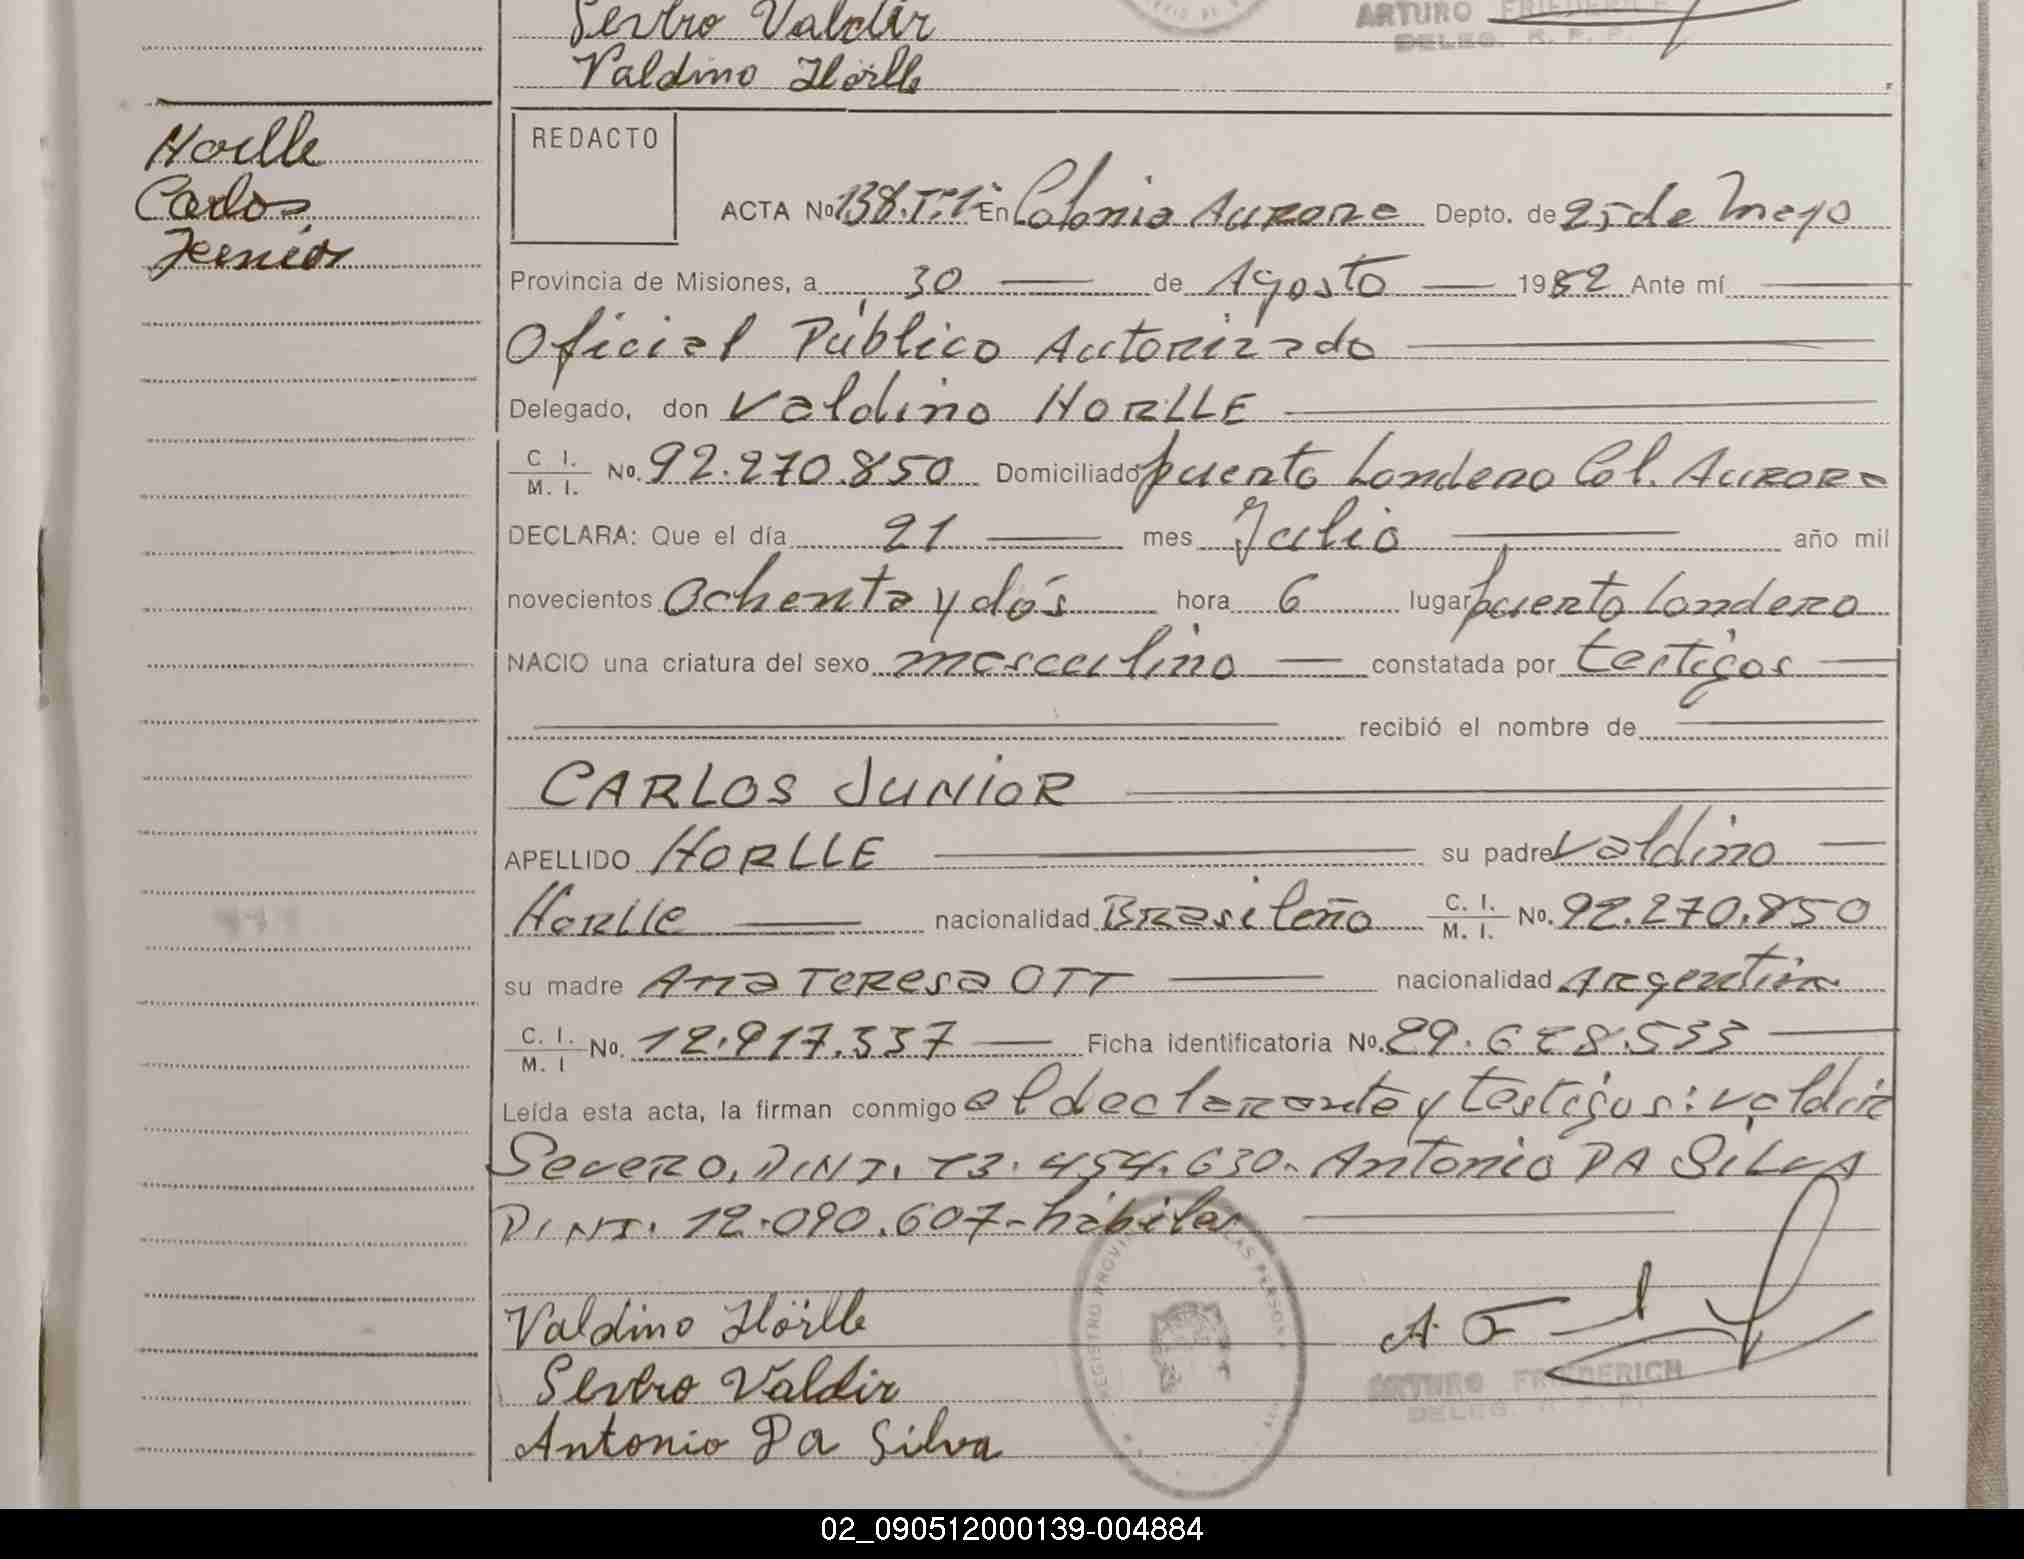 Severo Valdir
Valdino Hörlle
ARTURO FRIEDERICH
DELEG. R. P. P.
Horlle
Carlos
Junior
REDACTO
ACTA No 138.Tº1º En Colonia Aurora Depto. de 25 de Mayo
Provincia de Misiones, a 30 de Agosto 1982 Ante mí
Oficial Público Autorizado
Delegado, don Valdino HORLLE
C I. M. I. No. 92.270.850 Domiciliado puerto Londero Col. AURORA
DECLARA: Que el día 21 mes Julio año mil
novecientos Ochenta y dós hora 6 lugar puerto Londero
NACIO una criatura del sexo masculino constatada por testigos
recibió el nombre de
CARLOS JUNIOR
APELLIDO HORLLE su padre Valdino
Horlle nacionalidad Brasileño C. I. M. I. No. 92.270.850
su madre Ana Teresa OTT nacionalidad Argentina
C. I. M. I No. 12.917.337 Ficha identificatoria No. 29.628.533
Leída esta acta, la firman conmigo el declarante y testigos: valdir
Severo, D.N.I. 13.454.630. Antonio DA SILVA
D.N.I. 12.090.607-hábiles
REGISTRO PROVINCIAL LAS PERSONAS
Valdino Hörlle
Severo Valdir
Antonio Da Silva
ARTURO FRIEDERICH
DELEG. R. P. P.
02_090512000139-004884